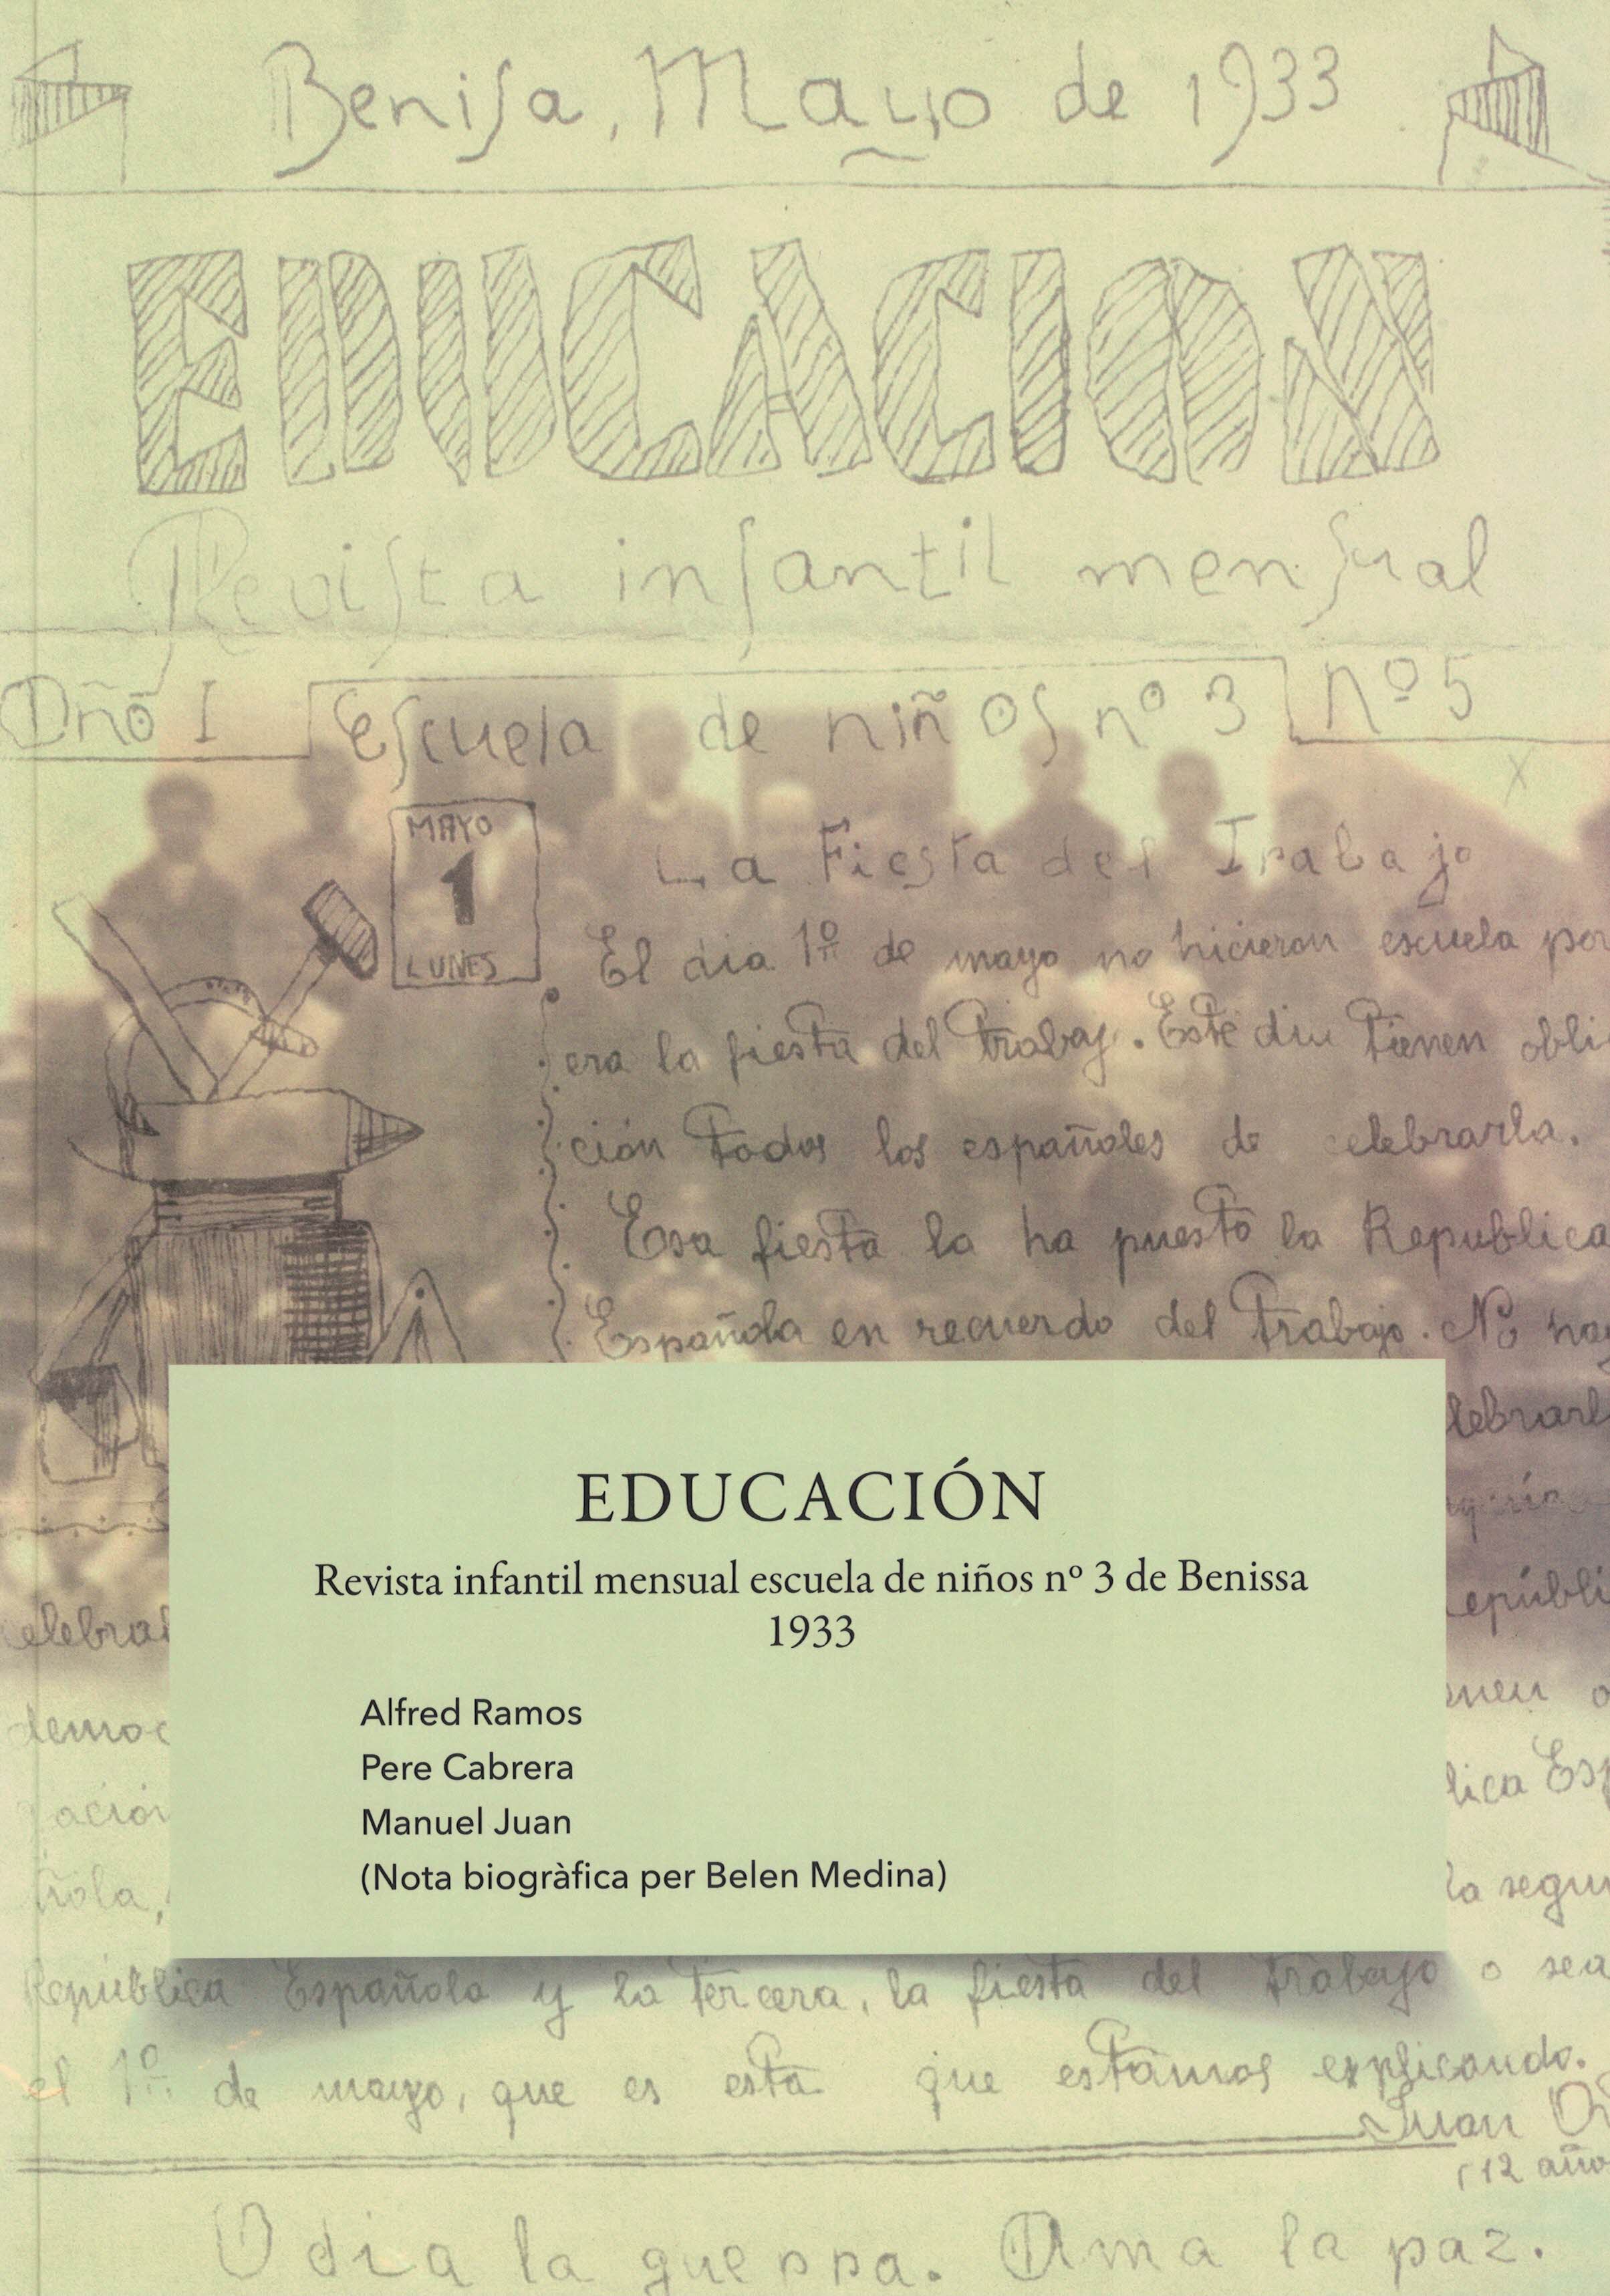 Benisa, Mayo de 1933
EDUCACION
Revista infantil mensual
Año I
Escuela de niños nº 3
nº 5
MAYO
1
LUNES
La Fiesta del Trabajo
El dia 1º de mayo no hicieron escuela por
era la fiesta del trabaj. Este dia tienen obli
ción todos los españoles de celebrarla.
Esa fiesta la ha puesto la Republica
Española en recuerdo del trabajo. No hay
lebrarl
EDUCACIÓN
Revista infantil mensual escuela de niños nº 3 de Benissa
1933
Alfred Ramos
Pere Cabrera
Manuel Juan
(Nota biogràfica per Belen Medina)
celebra
epúbli
democ
nen o
ación
lica Esp
ñola,
la segun
República Española y la tercera, la fiesta del trabajo o sea
el 1º de mayo, que es esta que estamos explicando.
Juan
(12 año
Odia la guerra. Ama la paz.